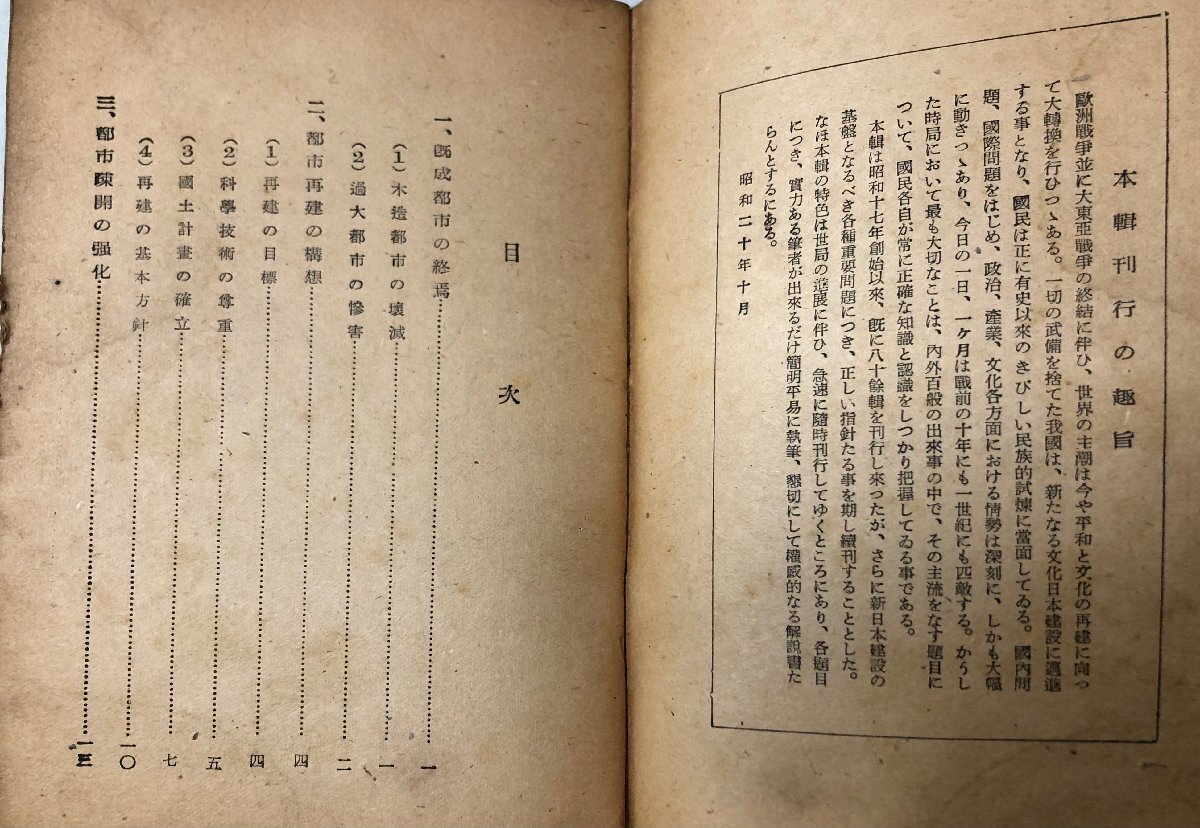 本輯刊行の趣旨
歐洲戰爭並に大東亞戰爭の終結に伴ひ、世界の主潮は今や平和と文化の再建に向つ
て大轉換を行ひつゝある。一切の武備を捨てた我國は、新たなる文化日本建設に邁進
する事となり、國民は正に有史以來のきびしい民族的試煉に當面してゐる。國內問
題、國際問題をはじめ、政治、產業、文化各方面における情勢は深刻に、しかも大幅
に動きつゝあり、今日の一日、一ヶ月は戰前の十年にも一世紀にも匹敵する。かうし
た時局において最も大切なことは、內外百般の出來事の中で、その主流をなす題目に
ついて、國民各自が常に正確な知識と認識をしつかり把握してゐる事である。
本輯は昭和十七年創始以來、旣に八十餘輯を刊行し來つたが、さらに新日本建設の
基盤となるべき各種重要問題につき、正しい指針たる事を期し續刊することとした。
なほ本輯の特色は世局の進展に伴ひ、急速に隨時刊行してゆくところにあり、各題目
につき、實力ある筆者が出來るだけ簡明平易に執筆、懇切にして權威的なる解說書た
らんとするにある。
昭和二十年十月
目次
一、旣成都市の終焉……一
(1)木造都市の壞滅……一
(2)過大都市の慘害……二
二、都市再建の構想……四
(1)再建の目標……四
(2)科學技術の尊重……五
(3)國土計畫の確立……七
(4)再建の基本方針……一〇
三、都市疎開の强化……一三